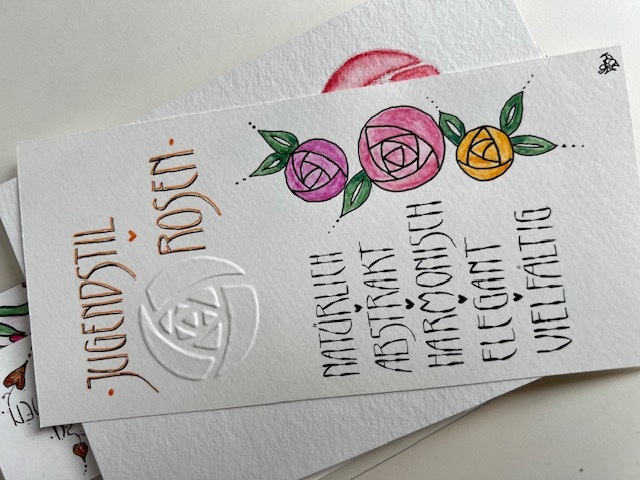 JUGENDSTIL
ROSEN
NATÜRLICH
ABSTRAKT
HARMONISCH
ELEGANT
VIELFÄLTIG